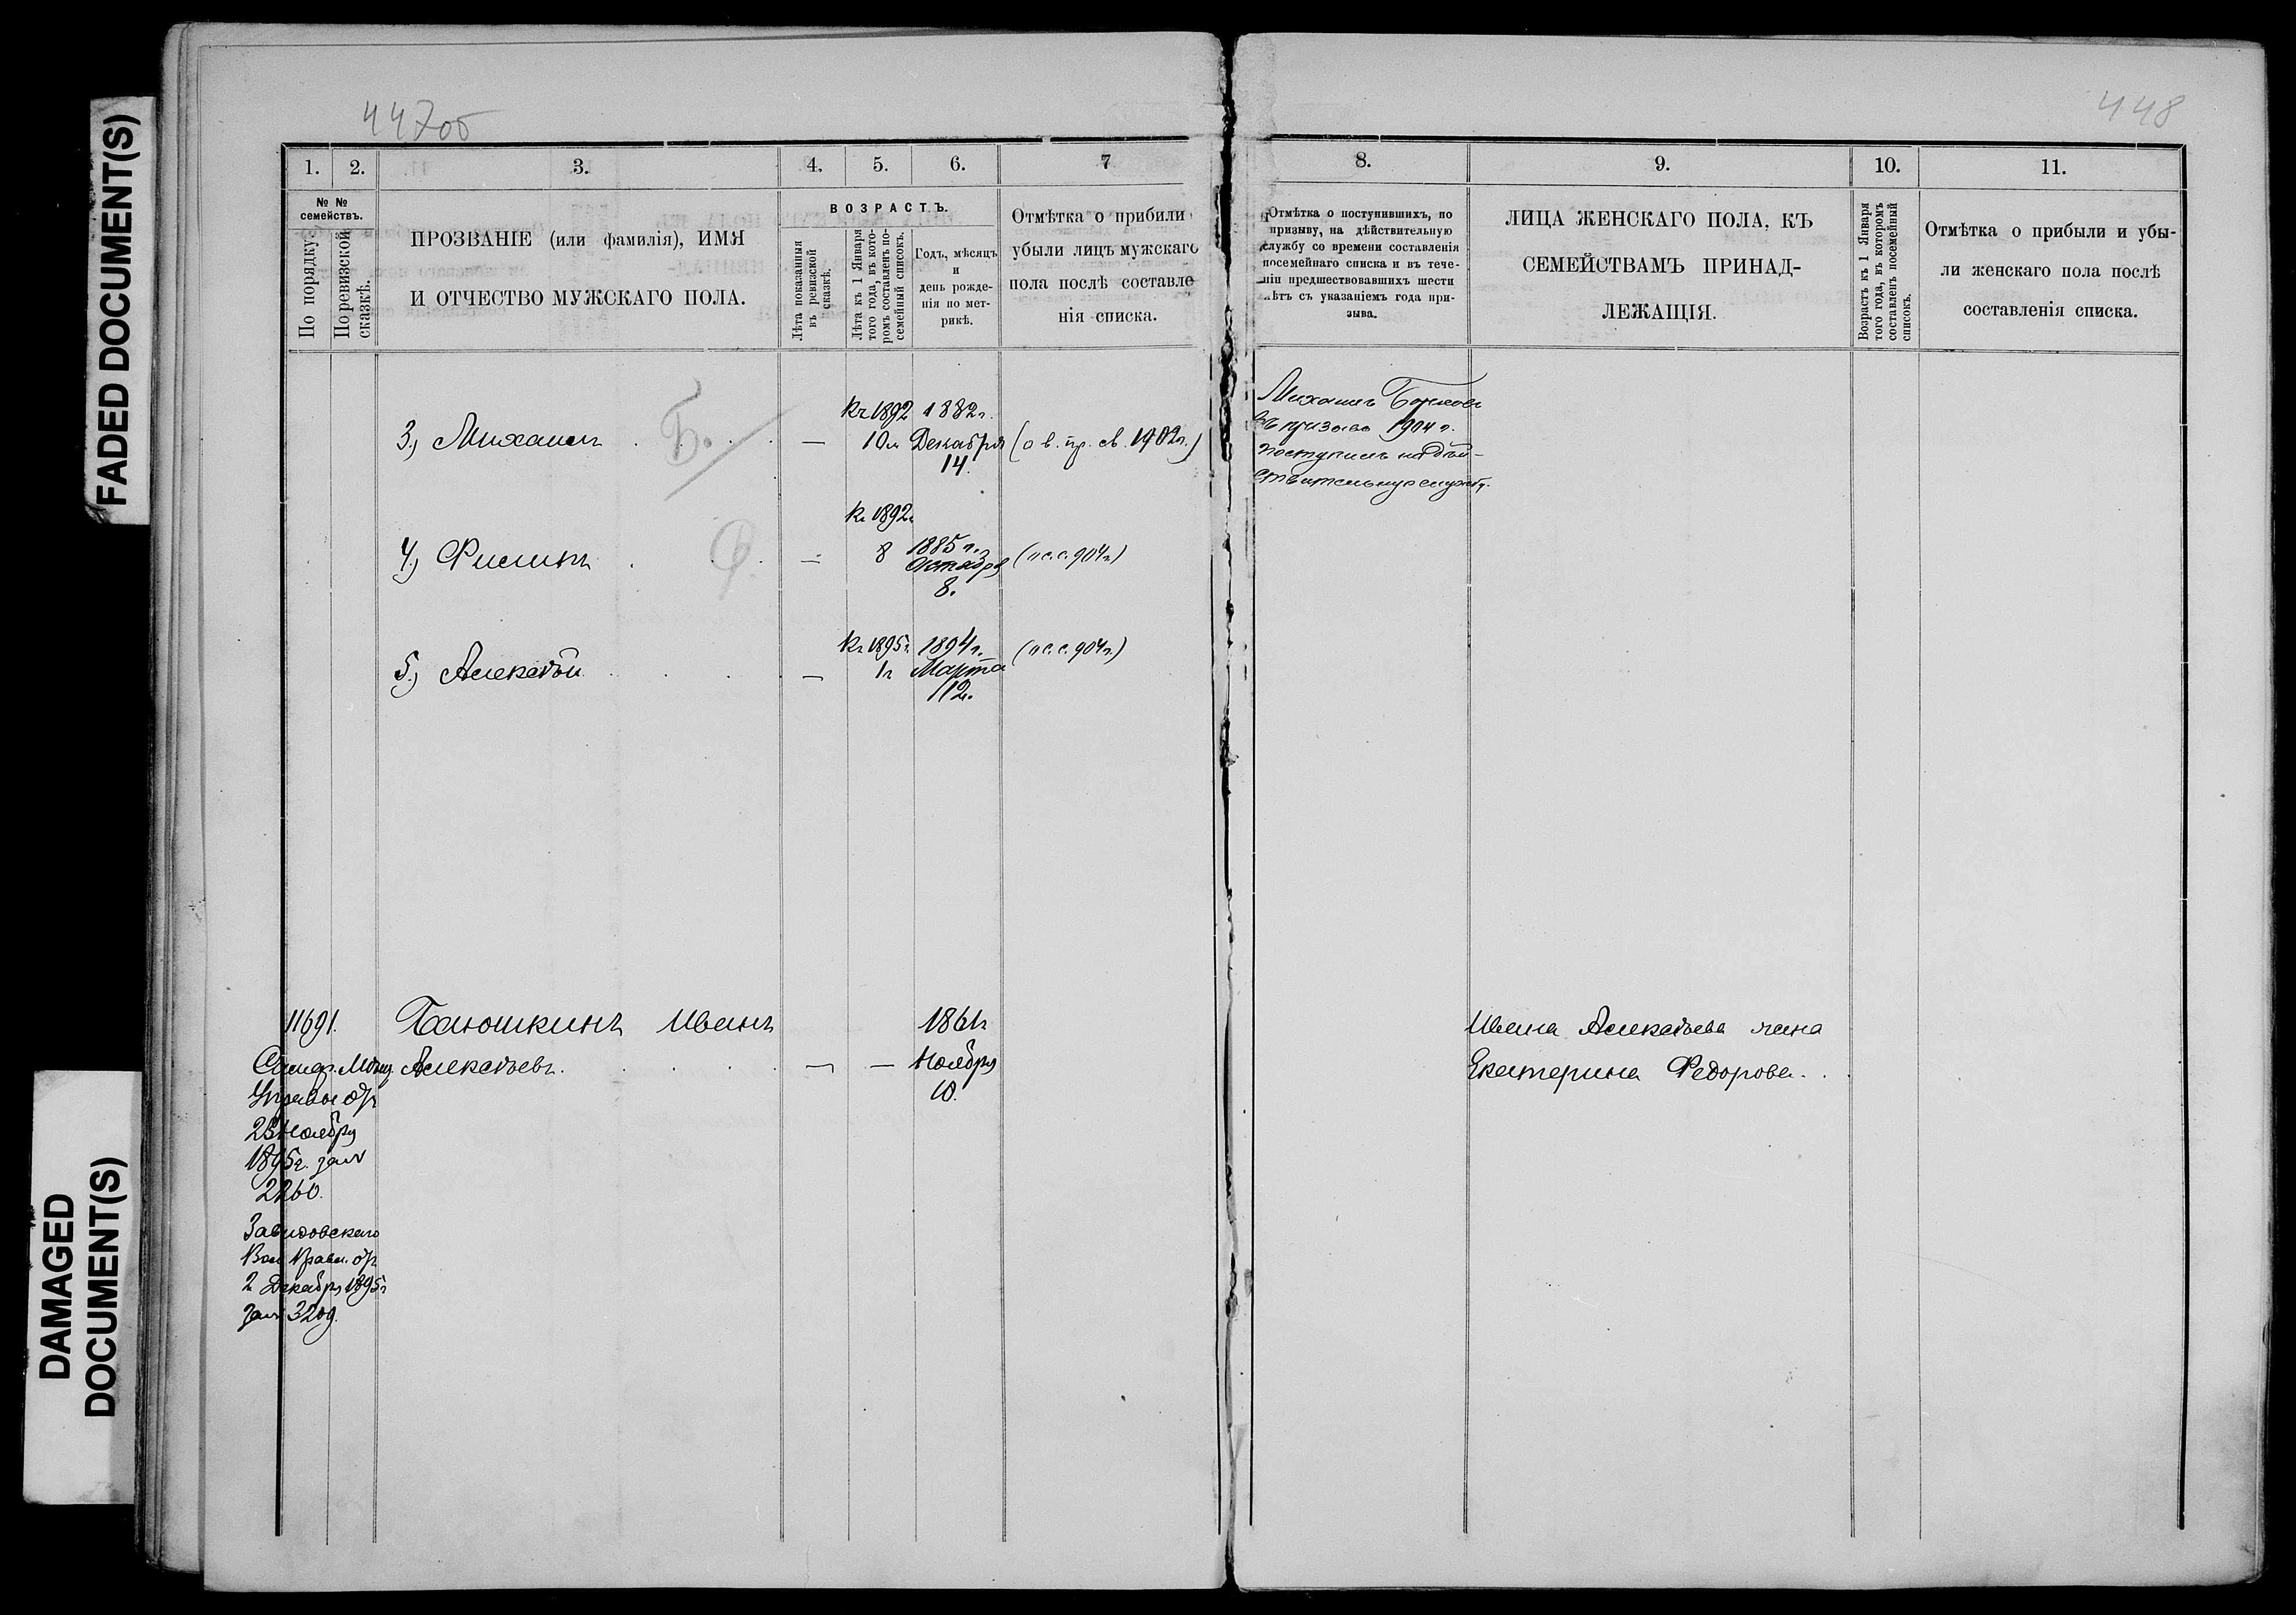 FADED DOCUMENT(S)
DAMAGED
DOCUMENT(S)
447об
448
1. 2. 3. 4. 5. 6. 7
№ №
семействъ.
По порядку.
По ревизской
сказкѣ.
ПРОЗВАНІЕ (или фамилія), ИМЯ
И ОТЧЕСТВО МУЖСКАГО ПОЛА.
ВОЗРАСТЪ.
Лѣта показанныя
въ ревизской
сказкѣ.
Лѣта къ 1 Января
того года, въ кото-
ромъ составленъ по-
семейный списокъ.
Годъ, мѣсяцъ
и
день рожде-
нія по мет-
рикѣ.
Отмѣтка о прибыли
убыли лицъ мужскаго
пола послѣ составле
нія списка.
3) Михаилъ
Б.
—
Къ 1892
10л
1882г.
Декабря
14.
(о в. пр. св. 1902г.)
4) Филипъ
Ф
—
Къ 1892г
8
1885г.
Октября
8.
(п с. с. 904г.)
5) Алексѣй
—
Къ 1895г
1г
1894г.
Марта
12.
(п с. с. 904г.)
11691.
Банюшкинъ Иванъ
Алексѣевъ.
— —
1861г
Ноября
10.
Управы отъ
23 Ноября
1895г. за №
2260.
Завидовскаго
Вол Правл. отъ
2 Декабря 1895г
за № 3209.
8. 9. 10. 11.
Отмѣтка о поступившихъ, по
призыву, на дѣйствительную
службу со времени составленія
посемейнаго списка и въ тече-
ніи предшествовавшихъ шести
лѣтъ съ указаніемъ года при-
зыва.
ЛИЦА ЖЕНСКАГО ПОЛА, КЪ
СЕМЕЙСТВАМЪ ПРИНАД-
ЛЕЖАЩІЯ.
Возрастъ къ 1 Января
того года, въ которомъ
составленъ посемейный
списокъ.
Отмѣтка о прибыли и убы-
ли женскаго пола послѣ
составленія списка.
Михаилъ
въ призывъ 1904г.
поступилъ на дѣй-
ствительную службу.
Ивана Алексѣева жена
Екатерина Федорова.